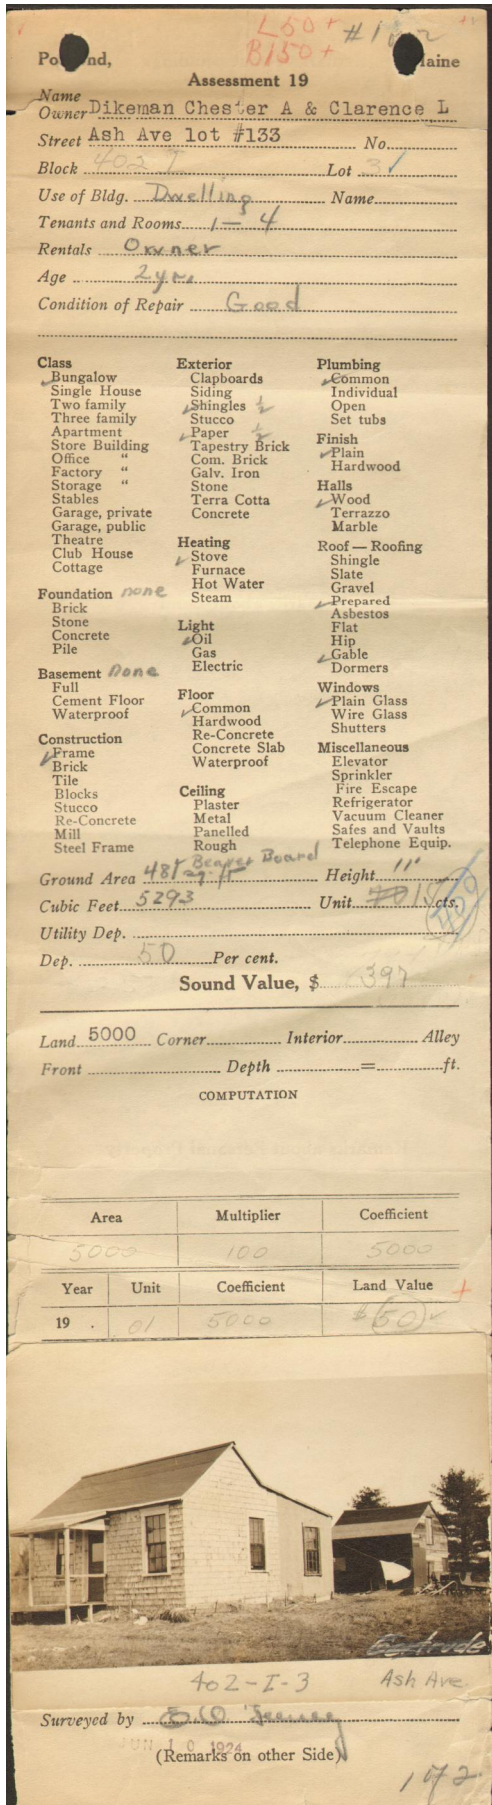 L50+
B150+ #172
Po nd, aine
Assessment 19
Name
Owner Dikeman Chester A & Clarence L
Street Ash Ave lot #133 No.
Block 402 I Lot 3
Use of Bldg. Dwelling Name
Tenants and Rooms 1 - 4
Rentals Owner
Age 2 yrs
Condition of Repair Good
Class
Bungalow
Single House
Two family
Three family
Apartment
Store Building
Office "
Factory "
Storage "
Stables
Garage, private
Garage, public
Theatre
Club House
Cottage
Foundation none
Brick
Stone
Concrete
Pile
Basement None
Full
Cement Floor
Waterproof
Construction
Frame
Brick
Tile
Blocks
Stucco
Re-Concrete
Mill
Steel Frame
Exterior
Clapboards
Siding
Shingles ½
Stucco
Paper ½
Tapestry Brick
Com. Brick
Galv. Iron
Stone
Terra Cotta
Concrete
Heating
Stove
Furnace
Hot Water
Steam
Light
Oil
Gas
Electric
Floor
Common
Hardwood
Re-Concrete
Concrete Slab
Waterproof
Ceiling
Plaster
Metal
Panelled
Rough
Beaver Board
Plumbing
Common
Individual
Open
Set tubs
Finish
Plain
Hardwood
Halls
Wood
Terrazzo
Marble
Roof — Roofing
Shingle
Slate
Gravel
Prepared
Asbestos
Flat
Hip
Gable
Dormers
Windows
Plain Glass
Wire Glass
Shutters
Miscellaneous
Elevator
Sprinkler
Fire Escape
Refrigerator
Vacuum Cleaner
Safes and Vaults
Telephone Equip.
Ground Area 481 sq. ft Height 11'
Cubic Feet 5293 Unit 15 cts.
Utility Dep.
Dep. 50 Per cent.
Sound Value, $ 397
Land 5000 Corner Interior Alley
Front Depth = ft.
COMPUTATION
Area Multiplier Coefficient
5000 100 5000
Year Unit Coefficient Land Value
19 . 01 5000 $ 50
Gertrude
402-I-3 Ash Ave.
Surveyed by
JUN 10 1924
(Remarks on other Side)
172